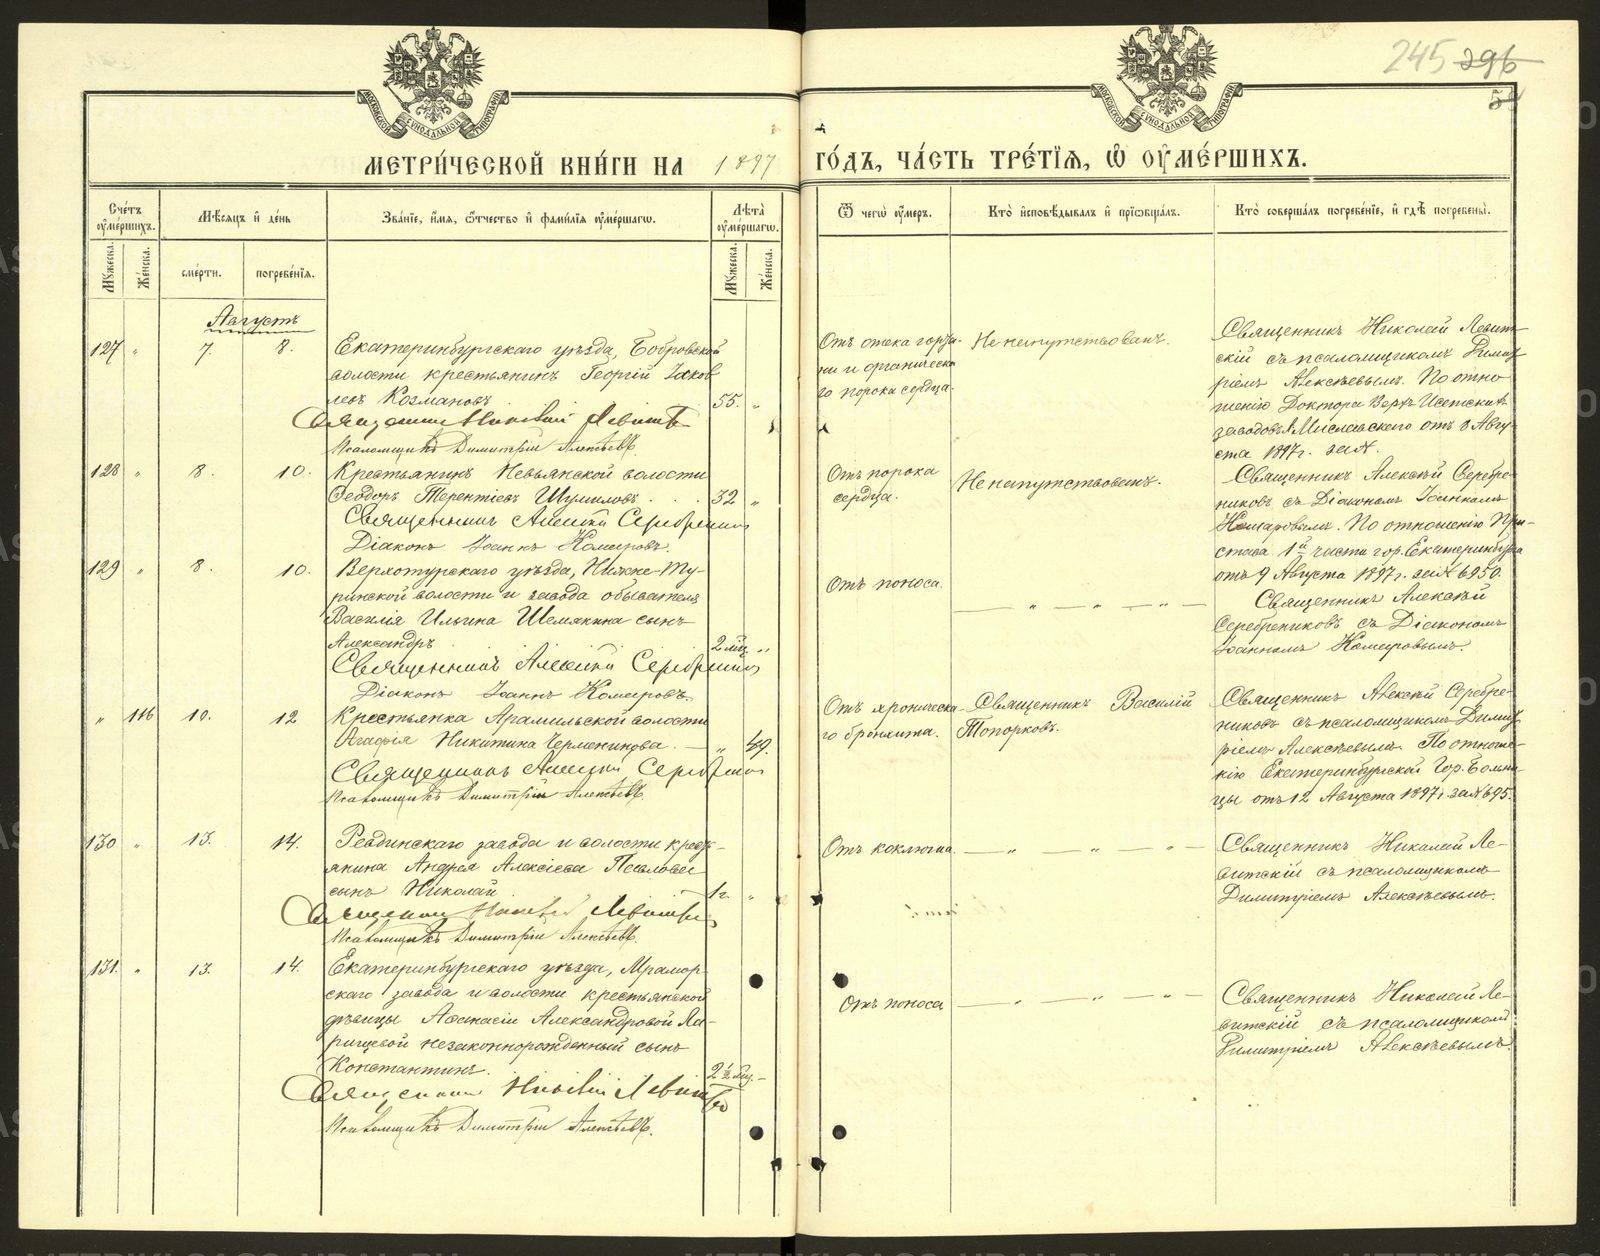 245 296
54
МЕТРИ́ЧЕСКОЙ КНИ́ГИ НА 1897 ГО́ДЪ, ЧА́СТЬ ТРЕ́ТЇѦ, Ѡ҆ ОУ҆МЕ́РШИХЪ.
Сче́тъ оу҆ме́ршихъ.
Мѣ́сяцъ и҆ де́нь
Зва́нїе, и҆́мя, ѻ҆́тчество и҆ фами́лїя оу҆ме́ршагѡ.
Лѣ̀та̀ оу҆ме́ршагѡ.
Ѿ чегѡ̀ оу҆́меръ.
Кто̀ и҆сповѣ́дывалъ и҆ прїѡбща́лъ.
Кто̀ соверша́лъ погребе́нїе, и҆ гдѣ̀ погребены̀.
Му́жеска.
Же́нска.
сме́рти.
погребе́нїя.
Му́жеска.
Же́нска.
Августъ
127 " 7. 8.
Екатеринбургскаго уѣзда, Бобровской
волости крестьянинъ Георгій Іаков
левъ Козмановъ 55. "
Священникъ Николай Левитскій
Псаломщикъ Димитрій Алексѣевъ.
Отъ отека горта-
ни и органическа
го порока сердца.
Не напутствованъ.
Священникъ Николай Левит
скій съ псаломщикомъ Димит
ріемъ Алексѣевымъ. По отно
шенію Доктора Верхъ Исетскихъ
заводовъ Миславскаго отъ 8 Авгу
ста 1897 г. за №.
128 " 8. 10.
Крестьянинъ Невьянской волости
Ѳеодоръ Терентіевъ Шумиловъ . . . 32 "
Священникъ Алексѣй Серебрениковъ
Діаконъ Іоаннъ Комаровъ.
Отъ порока
сердца.
Не напутствованъ.
Священникъ Алексѣй Серебре
никовъ съ Діакономъ Іоанномъ
Комаровымъ. По отношенію При-
става 1й части гор. Екатеринбурга
отъ 9 Августа 1897 г. за № 6950.
129 " 8. 10.
Верхотурскаго уѣзда, Нижне-Ту-
ринской волости и завода обывателя
Василія Ильина Шемякина сынъ
Александръ 2 мѣс. "
Священникъ Алексѣй Серебрениковъ
Діаконъ Іоаннъ Комаровъ.
Отъ поноса.
— " — " — " —
Священникъ Алексѣй
Серебрениковъ съ Діакономъ
Іоанномъ Комаровымъ.
" 116 10. 12
Крестьянка Арамильской волости
Агафія Никитина Черменинова. — " 49.
Священникъ Алексѣй Серебрениковъ
Псаломщикъ Димитрій Алексѣевъ.
Отъ хроническа-
го бронхита.
Священникъ Василій
Топорковъ.
Священникъ Алексѣй Серебре-
никовъ съ псаломщикомъ Димит
ріемъ Алексѣевымъ. По отноше-
нію Екатеринбургской Гор. Больни-
цы отъ 12 Августа 1897 г. за № 695.
130 " 13. 14.
Ревдинскаго завода и волости кресть-
янина Андрея Алексіева
сынъ Николай 1 г. "
Священникъ Николай Левитскій
Псаломщикъ Димитрій Алексѣевъ.
Отъ коклюша.
— " — " — " —
Священникъ Николай Ле-
витскій съ псаломщикомъ
Димитріемъ Алексѣевымъ.
131. " 13. 14.
Екатеринбургскаго уѣзда, Мрамор-
скаго завода и волости крестьянской
дѣвицы Афанасіи Александровой Ла-
рищевой незаконнорожденный сынъ
Константинъ. 2½ мѣс. —
Священникъ Николай Левитскій
Псаломщикъ Димитрій Алексѣевъ.
Отъ поноса
— " — " — " —
Священникъ Николай Ле-
витскій съ псаломщикомъ
Димитріемъ Алексѣевымъ.